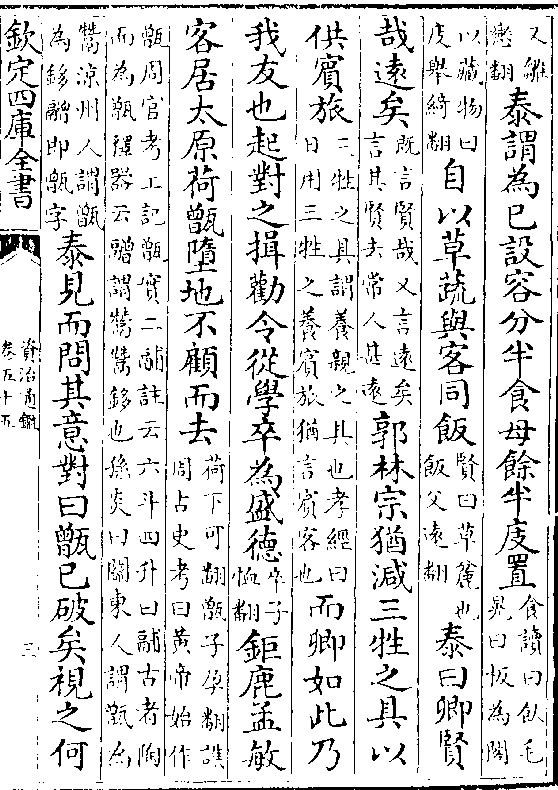 又雛
戀翻
泰謂為已設容分半食母餘半庋置
食讀曰飤毛
晃曰板為閣
以藏物曰
庋舉綺翻
自以草蔬與客同飯
賢曰草麤也
飯父遠翻
泰曰卿賢
哉遠矣
既言賢哉又言遠矣
言其賢去常人甚遠
郭林宗猶減三牲之具以
供賓旅
三牲之具謂養親之具也孝經曰
日用三牲之養賓旅猶言賓客也
而卿如此乃
我友也起對之揖勸令從學卒為盛德
卒子
恤翻
鉅鹿孟敏
客居太原荷甑墮地不顧而去
荷下可翻甑子孕翻譙
周古史考曰黃帝始作
甑周官考工記甑實二鬴註云六斗四升曰鬴古者陶
而為甑禮器云䰝謂鬵鬵鉹也孫炎曰關東人謂甑為
鬵涼州人謂甑
為鉹䰝即甑字
泰見而問其意對曰甑已破矣視之何
欽定四庫全書
資治通鑑
卷五十五
三